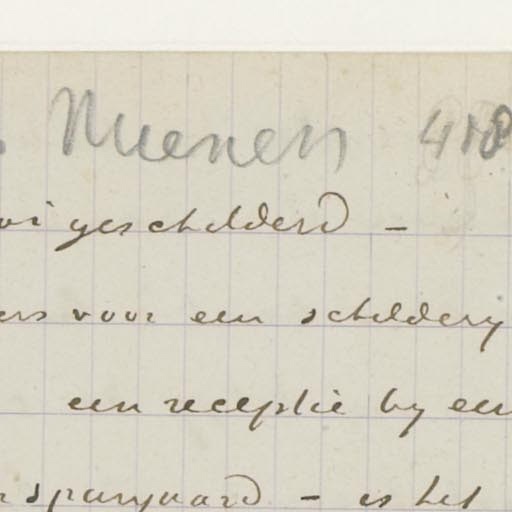 Nuenen 418
geschilderd –
voor een schildery
een receptie by een
spanjaard – is het